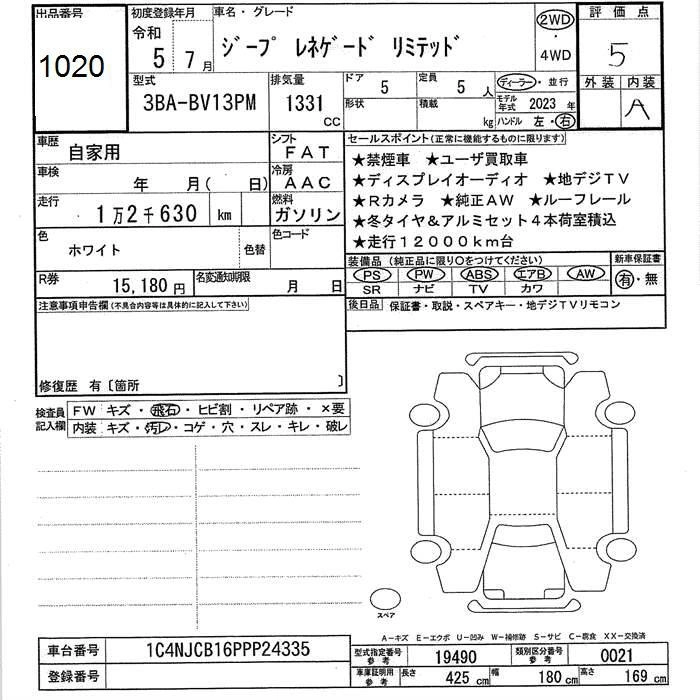 出品番号 初度登録年月 車名・グレード 2WD 評価点
1020 令和 5 7月 ジープ レネゲード リミテッド ・ 4WD 5
型式 排気量 ドア 定員 ディーラー・並行 外装 内装
3BA-BV13PM 1331 CC 5 5人 モデル年式 2023年 A
形状 積載 kg ハンドル 左・右
車歴 自家用 シフト FAT セールスポイント(正常に機能するものに限ります)
車検 年 月( 日) 冷房 AAC ★禁煙車 ★ユーザ買取車
走行 1万2千630 km 燃料 ガソリン ★ディスプレイオーディオ ★地デジTV
★Rカメラ ★純正AW ★ルーフレール
色 ホワイト 色替 色コード ★冬タイヤ&アルミセット4本荷室積込
★走行12000km台
R券 15,180円 名変通知期限 月 日 装備品(純正品に限り〇をつけてください) 新車保証書
PS PW ABS エアB AW 有・無
SR ナビ TV カワ
注意事項申告欄(不具合内容等は具体的に記入して下さい) 後日品 保証書・取説・スペアキー・地デジTVリモコン
修復歴 有〔箇所 〕
検査員記入欄 FW キズ・飛石・ヒビ割・リペア跡・×要
内装 キズ・汚レ・コゲ・穴・スレ・キレ・破レ
スペア
A−キズ E−エクボ U−凹み W−補修跡 S−サビ C−腐食 XX−交換済
車台番号 1C4NJCB16PPP24335 型式指定番号 参考 19490 類別区分番号 参考 0021
登録番号 車庫証明用 参考 長さ 425 cm 幅 180 cm 高さ 169 cm